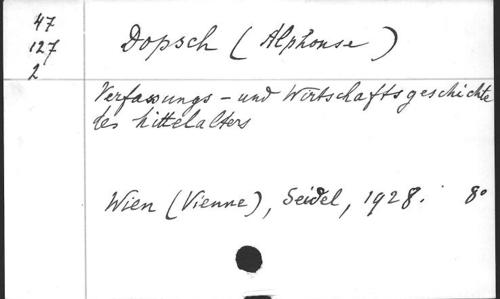 47
127
2
Dopsch (Alphonse)
Verfassungs - und Wirtschaftsgeschichte
des Mittelalters
Wien (Vienne), Seidel, 1928. 8°